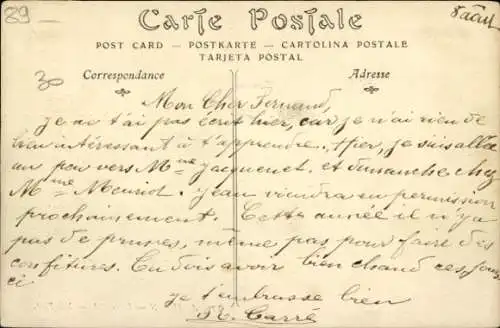 89
8 août
Carte Postale
POST CARD — POSTKARTE — CARTOLINA POSTALE
TARJETA POSTAL
Correspondance
Adresse
30
Mon Cher Fernand,
je ne t'ai pas écrit hier, car je n'ai rien de
bien intéressant à t'apprendre. Hier, je suis allé
un peu vers Mme Jacquenet. et dimanche chez
Mme Meuriot. Jean viendra en permission
prochainement. Cette année il n'y a
pas de prunes, même pas pour faire des
confitures. Tu dois avoir bien chaud ces jours
ci
je t'embrasse bien
Carré